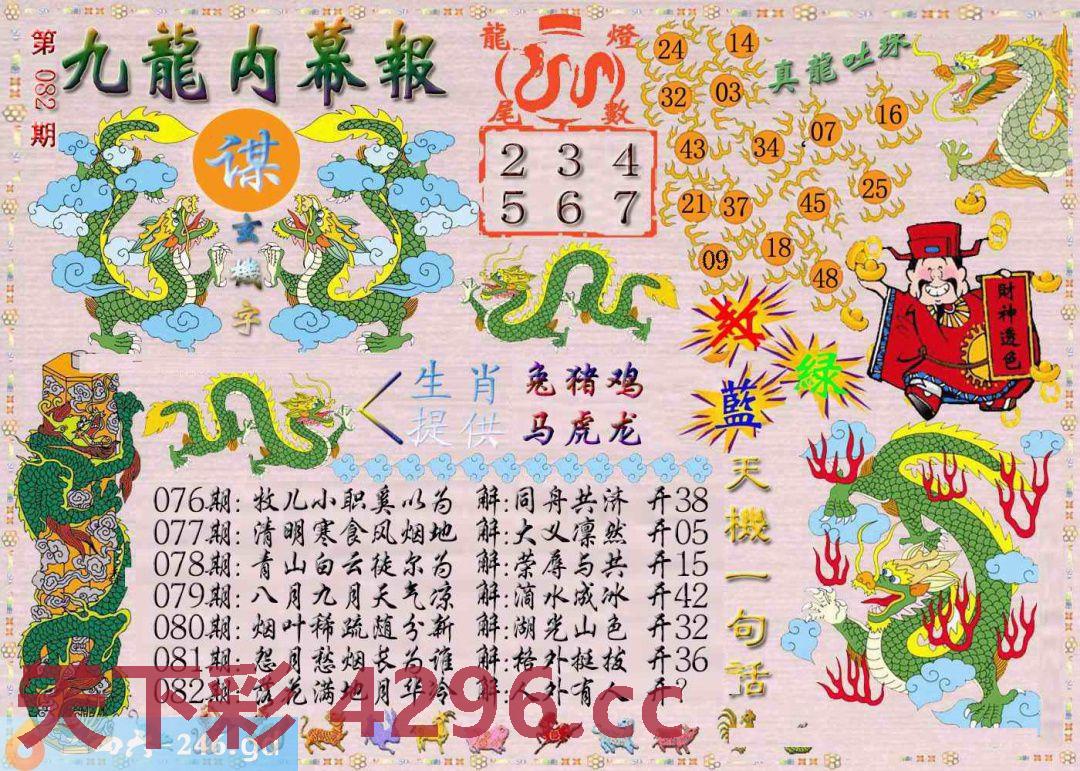 第082期
九龍内幕報
谋
玄機字
龍燈
尾數
2 3 4
5 6 7
真龍吐珠
24 14
32 03
43 34 07 16
21 37 45 25
09 18 48
財神透色
红
绿
藍
生肖 兔猪鸡
提供 马虎龙
天機一句话
076期: 牧儿小职莫以为 解:同舟共济 开38
077期: 清明寒食风烟地 解:大义凛然 开05
078期: 青山白云徒尔为 解:荣辱与共 开15
079期: 八月九月天气凉 解:滴水成冰 开42
080期: 烟叶稀疏随分新 解:湖光山色 开32
081期: 怨月愁烟长为谁 解:格外挺拔 开36
082期: 落花满地月华冷 解:人外有人 开?
天下彩 4296.cc
=246.gd